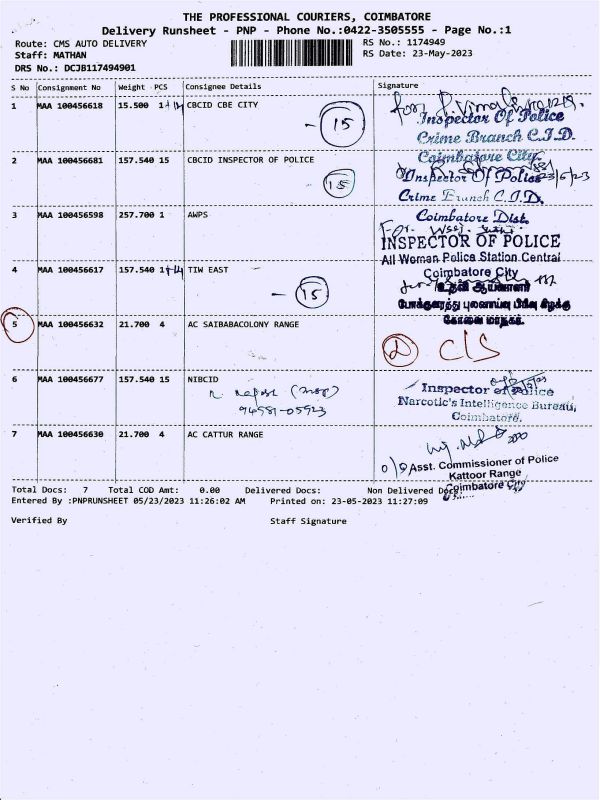 THE PROFESSIONAL COURIERS, COIMBATORE
Delivery Runsheet - PNP - Phone No.:0422-3505555 - Page No.:1
Route: CMS AUTO DELIVERY
RS No.: 1174949
Staff: MATHAN
RS Date: 23-May-2023
DRS No.: DCJB117494901
S No Consignment No Weight PCS Consignee Details Signature
1 MAA 100456618 15.500 1+14 CBCID CBE CITY
- 15
for
Inspector Of Police
Crime Branch C.I.D.
Coimbatore City.
2 MAA 100456681 157.540 15 CBCID INSPECTOR OF POLICE
15
Inspector Of Police 23/5/23
Crime Branch C.I.D.
Coimbatore Dist.
3 MAA 100456598 257.700 1 AWPS
For.
INSPECTOR OF POLICE
All Woman Police Station Central
Coimbatore City
4 MAA 100456617 157.540 1+14 TIW EAST
- 15
உதவி ஆய்வாளர்
போக்குவரத்து புலனாய்வு பிரிவு கிழக்கு
கோவை மாநகர்.
5 MAA 100456632 21.700 4 AC SAIBABACOLONY RANGE
C/S
6 MAA 100456677 157.540 15 NIBCID
94981-05923
Inspector of Police
Narcotic's Intelligence Bureau,
Coimbatore.
7 MAA 100456630 21.700 4 AC CATTUR RANGE
Asst. Commissioner of Police
Kattoor Range
Coimbatore City
Total Docs: 7 Total COD Amt: 0.00 Delivered Docs: Non Delivered Docs:
Entered By :PNPRUNSHEET 05/23/2023 11:26:02 AM Printed on: 23-05-2023 11:27:09
Verified By Staff Signature